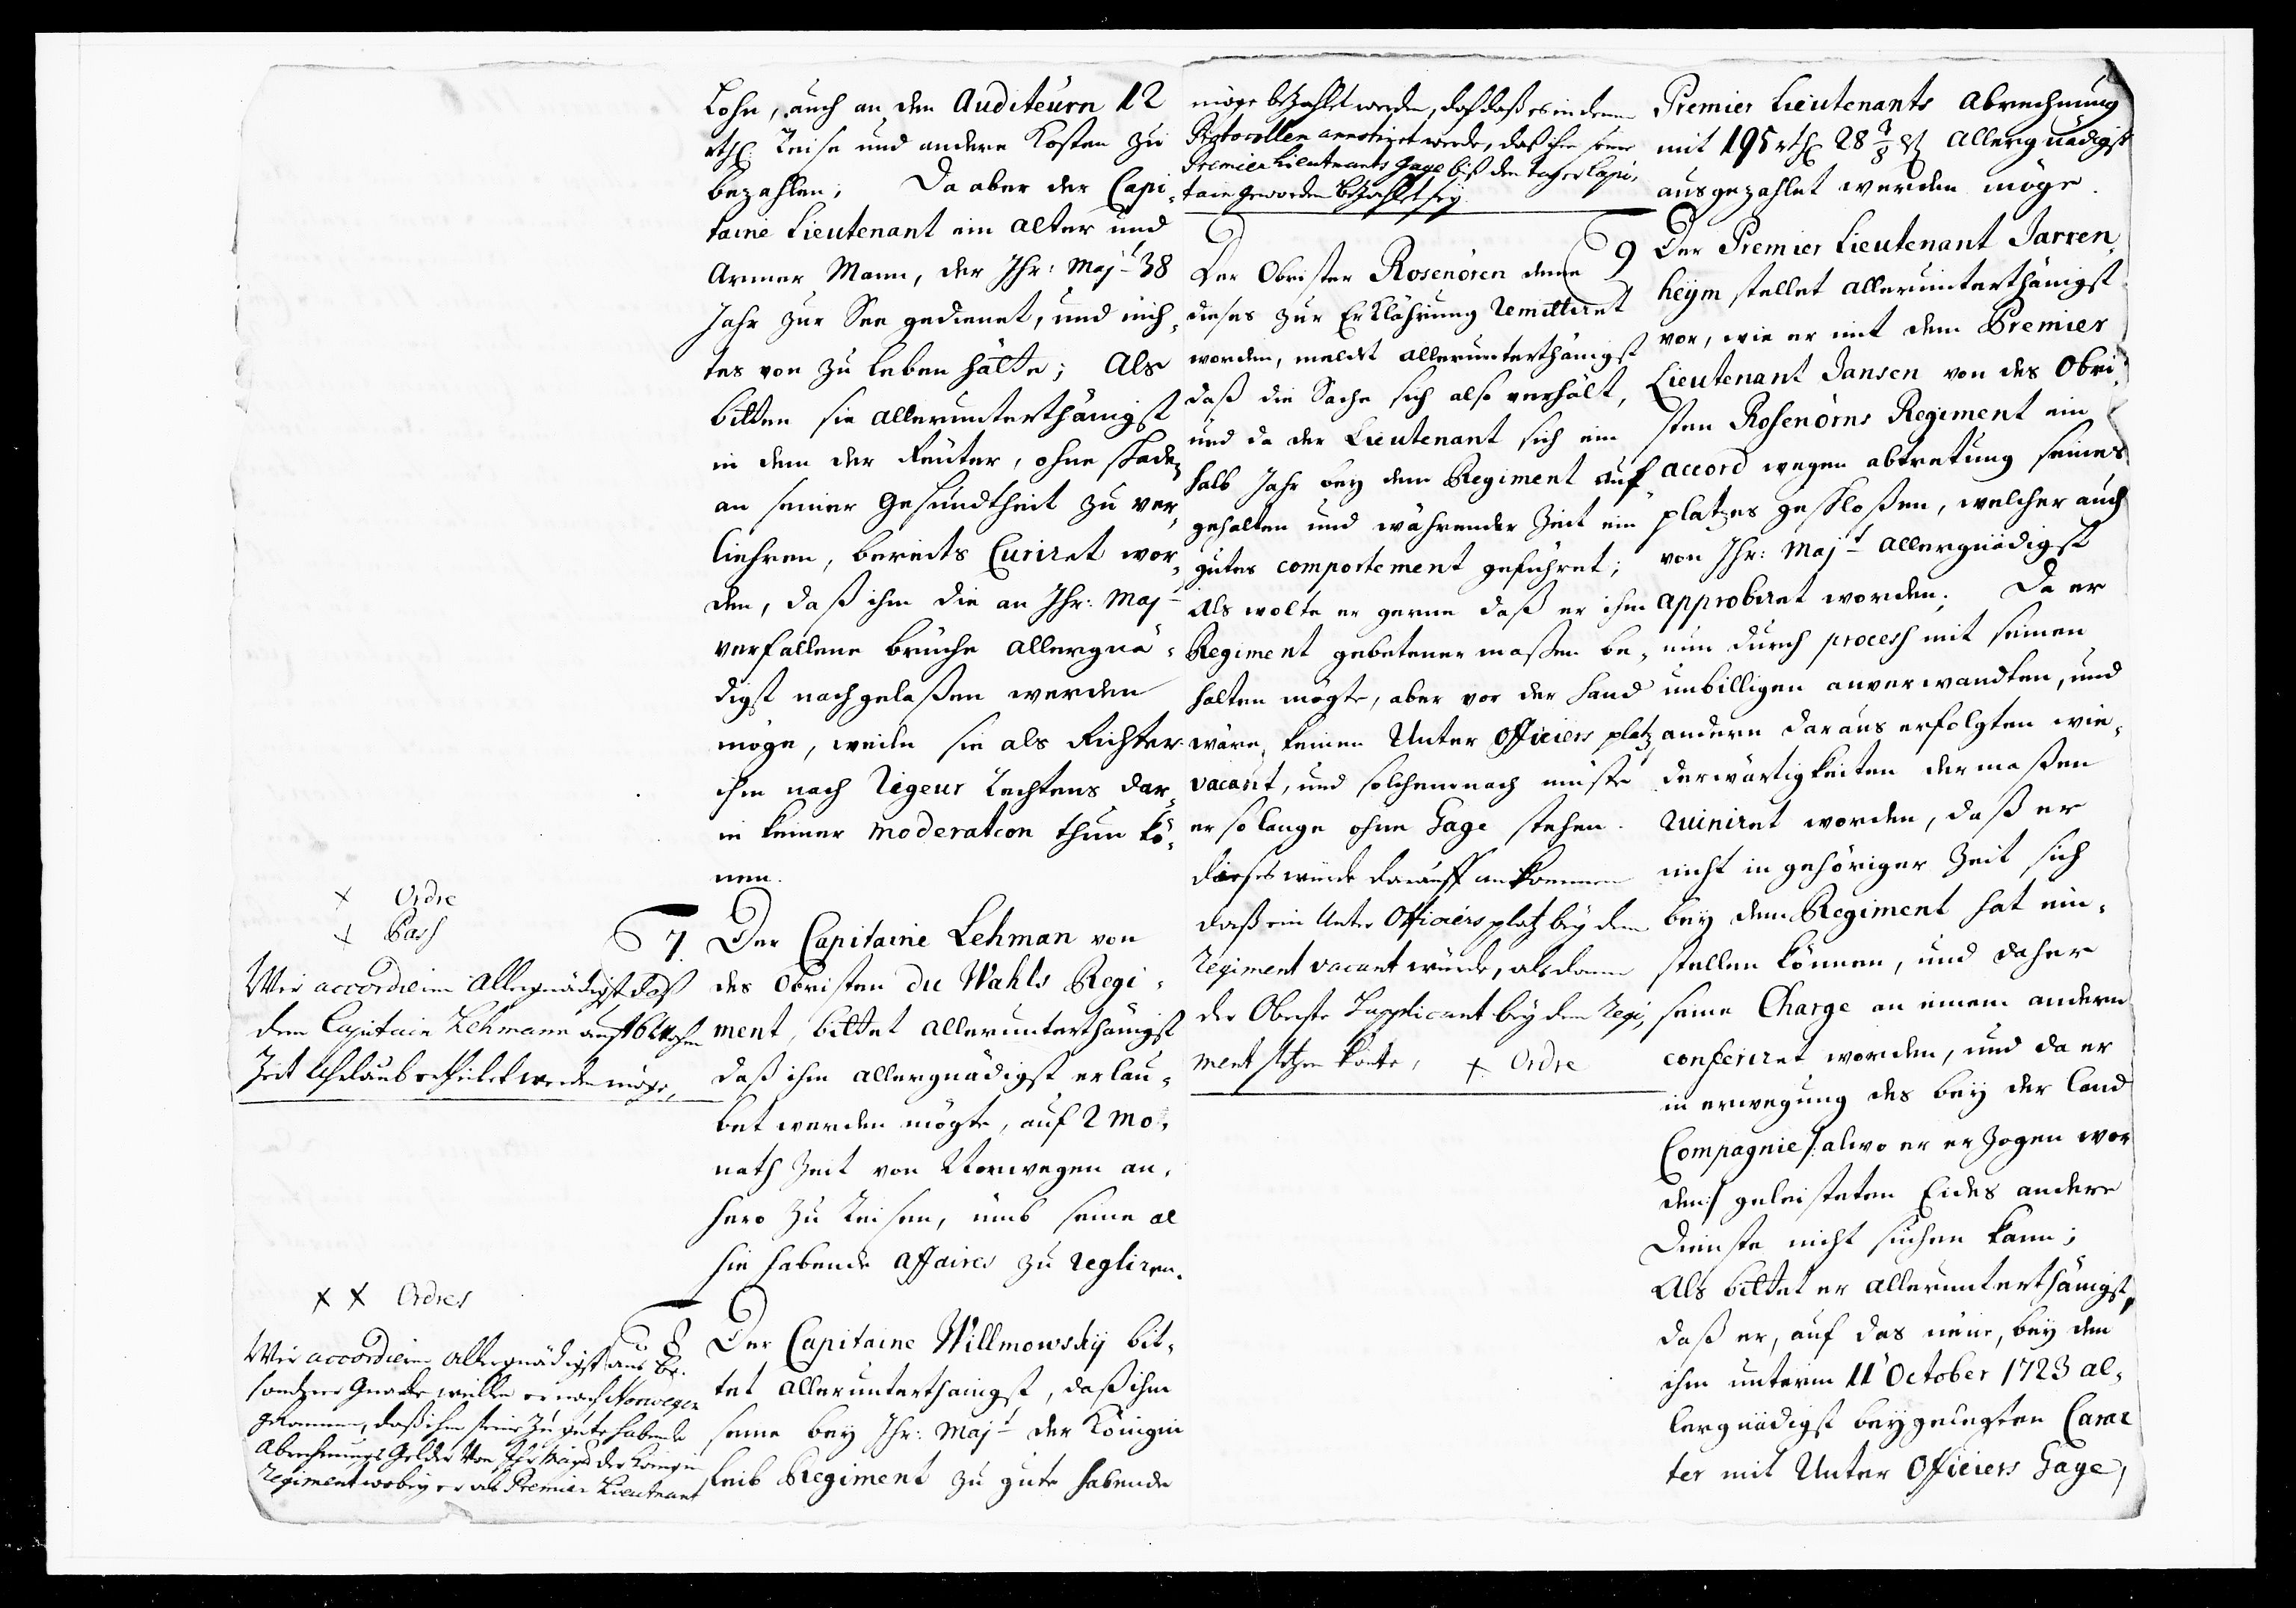 Lohn, auch an den Auditeurn 12
rthl: Reise und andere Kosten zu
bezahlen; Da aber der Capi-
taine Lieutenant ein alter und
Armer Mann, der Ihr: Majt 38
Jahr zur See gedienet, und nich-
tes von zu leben hätte; Als
bitten sie allerunterthänigst
in dem der Reuter, ohne schaden
an seiner Gesundtheit zu ver-
liehren, bereits Curiret wor-
den, daß ihm die an Ihr: Majt
verfallene brüche allergnä-
digst nachgelaßen werden
möge, weiln sie als Richter
ihm nach Rigeur Rechtens dar-
in keiner moderation thun kö-
nen.
+ Ordre
+ Pass
Wir accordiren Allergnädigst daß
dem Capitain Lehmann auf 16 Wochen
Zeit Uhrlaub ertheilet werden möge,
7. Der Capitaine Lehman von
des Obristen du Wahls Regi-
ment, bittet allerunterthänigst
daß ihm allergnädigst erlau-
bet werden mögte, auf 2 Mo-
nath Zeit von Norwegen an-
hero zu Reisen, umb seine al
hie habende Affaires zu regliren.
+ + Ordres
Wir accordiren allergnädigst aus be-
sondrer Gnade, weilln er nach Norwegen
gekommen, daß ihm seine zu gute habende
Abrechnungs Gelder von Ihr Mayt der Königin
Regiment wobey er als Premier Lieutnant
8 Der Capitaine Willmowsky bit-
tet allerunterthänigst, daß ihm
seine bey Ihr: Majt der Königin
Leib Regiment zu gute habende
möge bezahlet werden, doch daß es in denen
Protocollen annotiret werde, daß ihm seine
Premier Lieutnants Gage biß den tag er Capi-
tain geworden bezahlet sey
Der Obrister Rosenören deme
dieses zur Erklährung remittiret
worden, meldet allerunterthänigst
daß die Sache sich also verhält,
und da der Lieutenant sich ein
halb Jahr bey dem Regiment auf
gehalten und währender Zeit ein
gutes comportement geführet;
Als wolte er gerne daß er ihm
Regiment gebetener maßen be-
halten mögte, aber vor der hand
wäre, keinen Unter Officiers platz
vacant, und solchemnach müste
er so lange ohne Gage stehen.
dieses würde darauff ankommen
daß ein Unter Officiers platz bey dem
Regiment vacant würde, alsdann
der Oberste Supplicant bey dem Regi-
ment setzen könte, + Ordre
Premier Lieutenants Abrechnung
mit 195 rthl 28 7/8 ß Allergnädigst
ausgezahlet werden möge.
9 Der Premier Lieutenant Jarren-
heym stellet allerunterthänigst
vor, wie er mit dem Premier
Lieutenant Jansen von des Obri-
sten Rosenörns Regiment ein
accord wegen abtretung seines
platzes geschloßen, welcher auch
von Ihr: Majt allergnädigst
approbiret worden; Da er
nun durch process mit seinen
unbilligen anverwandten, und
andern daraus erfolgten wie-
derwärtigkeiten dermaßen
ruiniret worden, daß er
nicht in gehöriger Zeit sich
bey dem Regiment hat ein-
stellen können, und daher
seine Charge an einem andern
conferiret worden, und da er
in erwegung des bey der Land
Compagnie /: alwo er erzogen wor
den :/ geleisteten Eides andere
Dienste nicht suchen kann;
Als bittet er allerunterthänigst,
daß er, auf das neüe, bey den
ihm unterm 11' October 1723 al-
lergnädigst beygelegten Carac
ter mit Unter Officiers Gage,